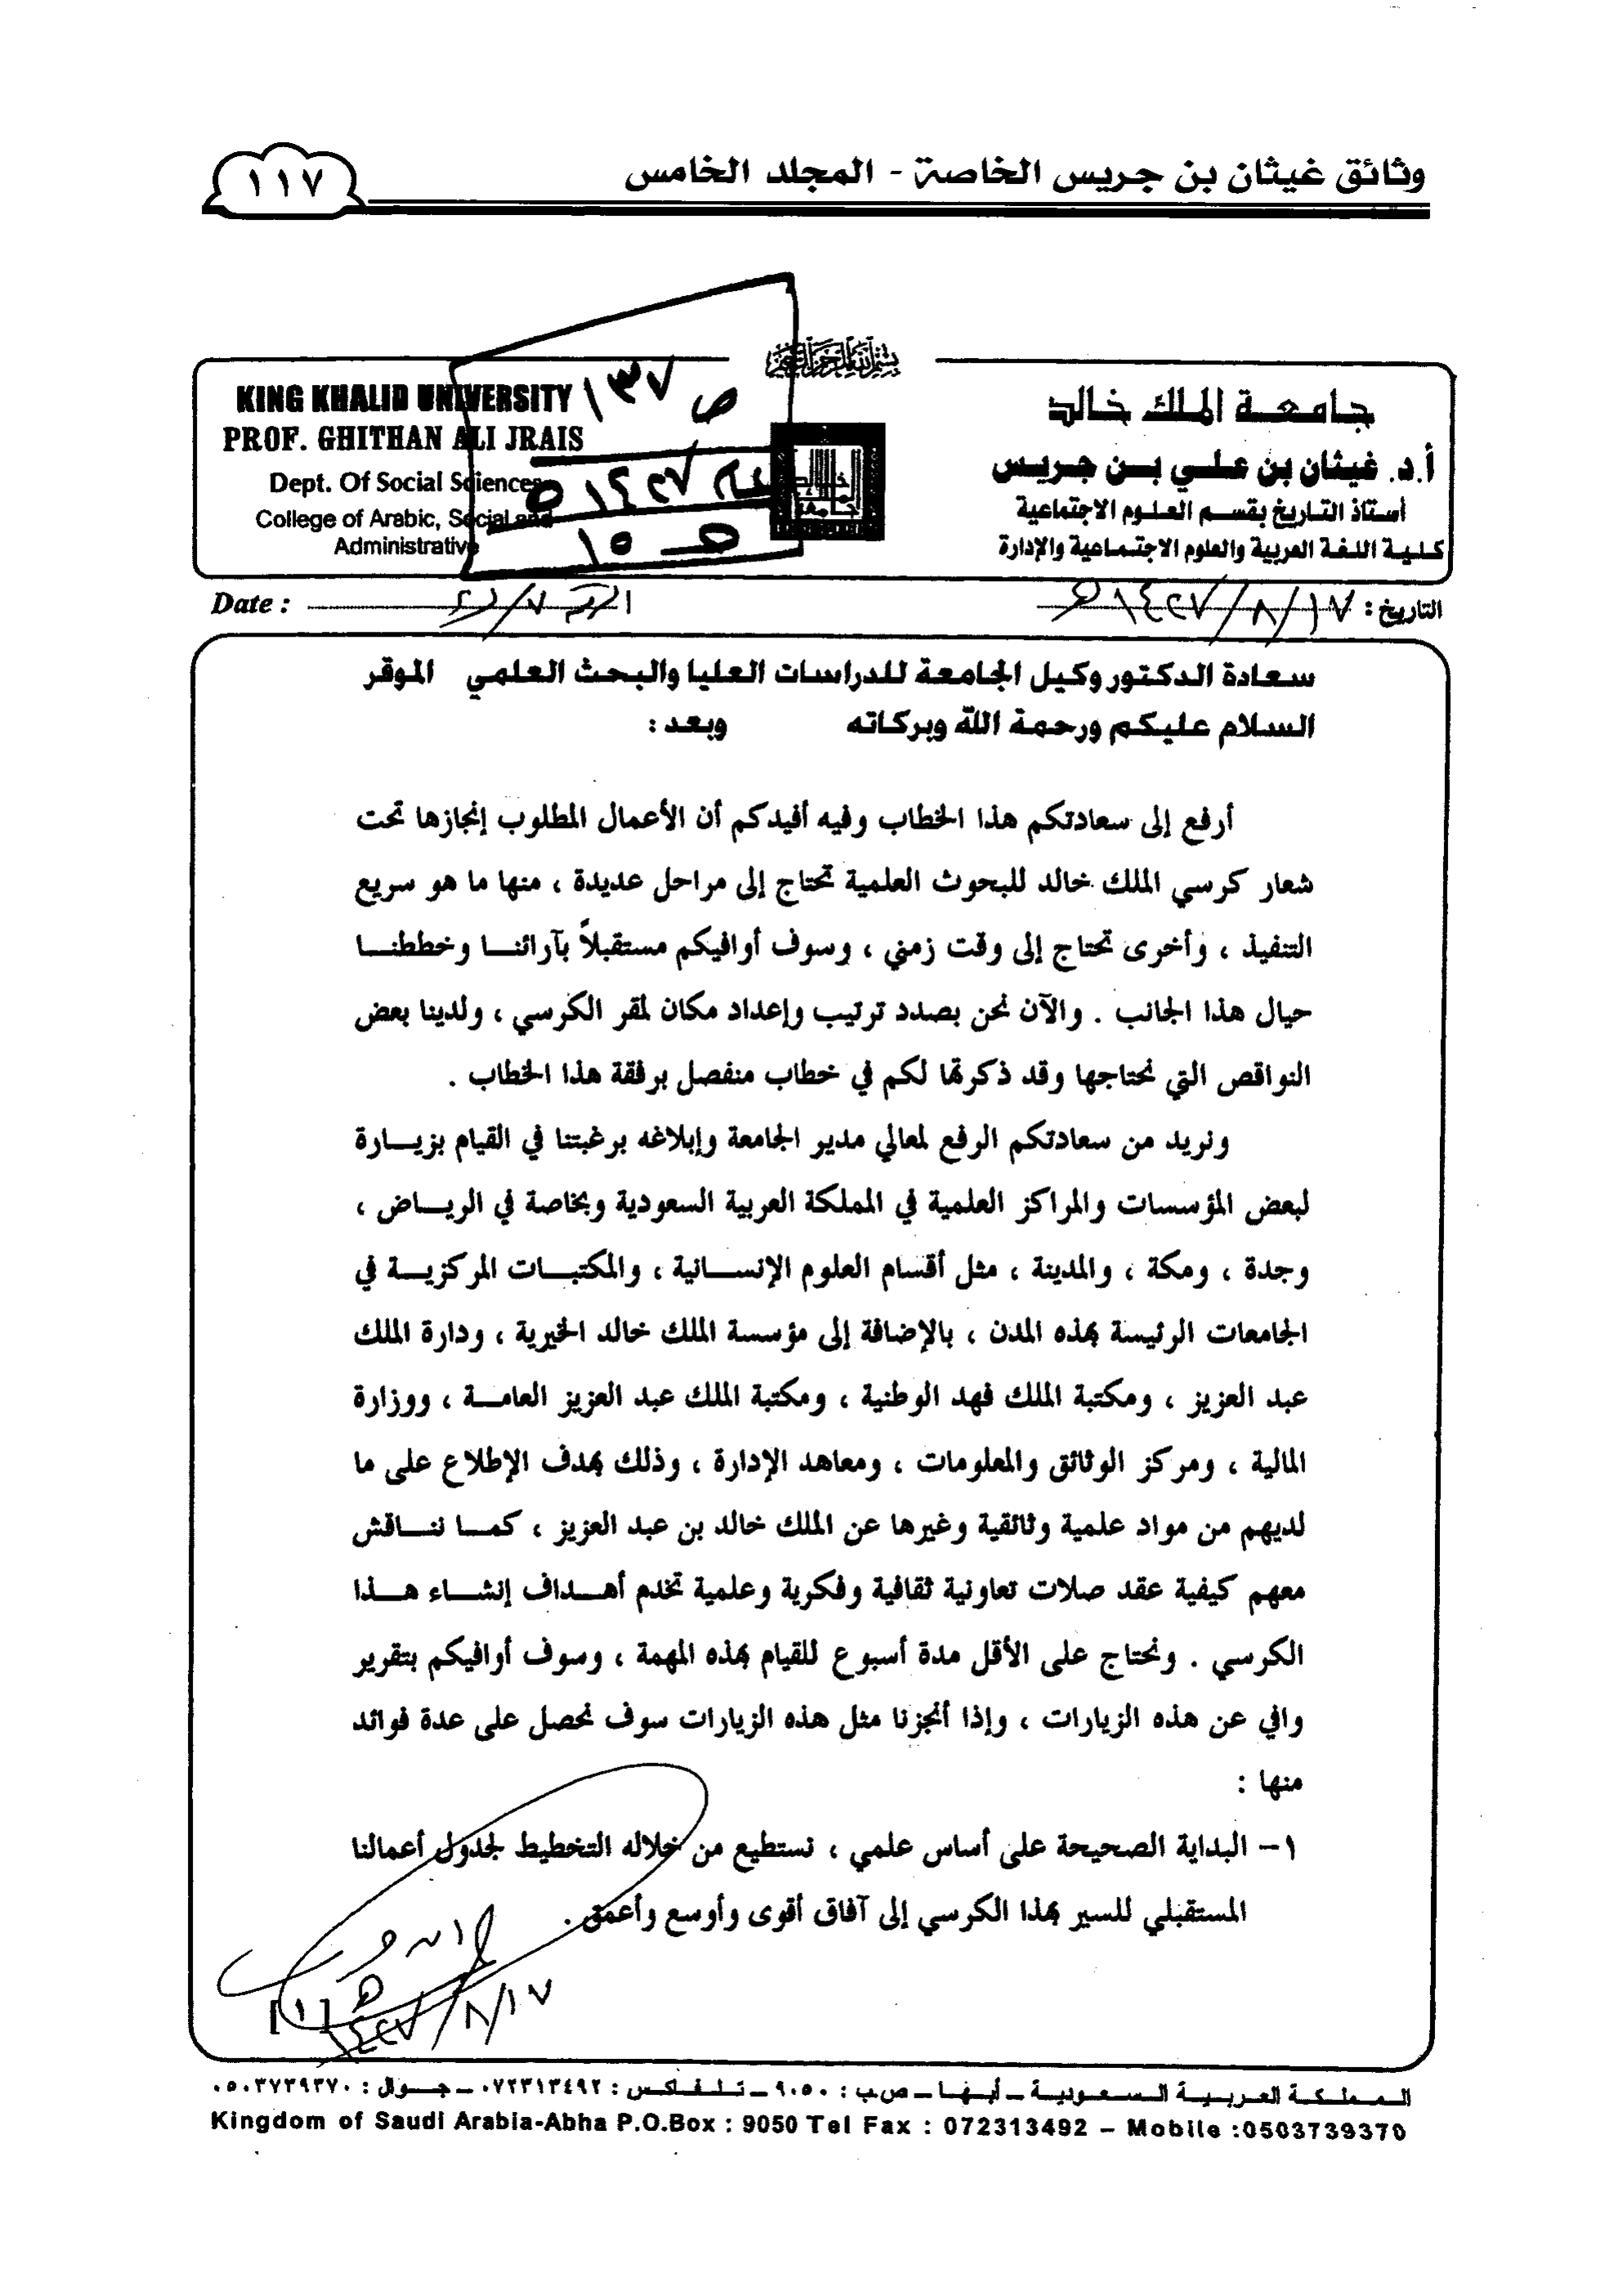 وثائق غيثان بن جريس الخاصة - المجلد الخامس
١١٧
بسم الله الرحمن الرحيم
جامعة الملك خالد
أ.د. غيثان بن علي بن جريس
أستاذ التاريخ بقسم العلوم الاجتماعية
كلية اللغة العربية والعلوم الاجتماعية والإدارة
KING KHALID UNIVERSITY
PROF. GHITHAN ALI JRAIS
Dept. Of Social Sciences
College of Arabic, Social and
Administrative
ص ١٣٧
١٤٢٧هـ
التاريخ : ١٧/٨/١٤٢٧هـ
Date :
سعادة الدكتور وكيل الجامعة للدراسات العليا والبحث العلمي الموقر
السلام عليكم ورحمة الله وبركاته وبعد :
أرفع إلى سعادتكم هذا الخطاب وفيه أفيدكم أن الأعمال المطلوب إنجازها تحت
شعار كرسي الملك خالد للبحوث العلمية تحتاج إلى مراحل عديدة ، منها ما هو سريع
التنفيذ ، وأخرى تحتاج إلى وقت زمني ، وسوف أوافيكم مستقبلاً بآرائنا وخططنا
حيال هذا الجانب . والآن نحن بصدد ترتيب وإعداد مكان لمقر الكرسي ، ولدينا بعض
النواقص التي نحتاجها وقد ذكرتها لكم في خطاب منفصل برفقة هذا الخطاب .
ونريد من سعادتكم الرفع لمعالي مدير الجامعة وإبلاغه برغبتنا في القيام بزيارة
لبعض المؤسسات والمراكز العلمية في المملكة العربية السعودية وبخاصة في الرياض ،
وجدة ، ومكة ، والمدينة ، مثل أقسام العلوم الإنسانية ، والمكتبات المركزية في
الجامعات الرئيسة بهذه المدن ، بالإضافة إلى مؤسسة الملك خالد الخيرية ، ودارة الملك
عبد العزيز ، ومكتبة الملك فهد الوطنية ، ومكتبة الملك عبد العزيز العامة ، ووزارة
المالية ، ومركز الوثائق والمعلومات ، ومعاهد الإدارة ، وذلك بهدف الإطلاع على ما
لديهم من مواد علمية وثائقية وغيرها عن الملك خالد بن عبد العزيز ، كما نناقش
معهم كيفية عقد صلات تعاونية ثقافية وفكرية وعلمية تخدم أهداف إنشاء هذا
الكرسي . ونحتاج على الأقل مدة أسبوع للقيام بهذه المهمة ، وسوف أوافيكم بتقرير
وافي عن هذه الزيارات ، وإذا أنجزنا مثل هذه الزيارات سوف نحصل على عدة فوائد
منها :
١- البداية الصحيحة على أساس علمي ، نستطيع من خلاله التخطيط لجدول أعمالنا
المستقبلي للسير بهذا الكرسي إلى آفاق أقوى وأوسع وأعمق .
١٧/٨/١٤٢٧هـ
[١]
المملكة العربية السعودية – أبها – ص.ب : ٩٠٥٠ – تلفاكس : ٠٧٢٣١٣٤٩٢ – جوال : ٠٥٠٣٧٣٩٣٧٠
Kingdom of Saudi Arabia-Abha P.O.Box : 9050 Tel Fax : 072313492 – Mobile :0503739370